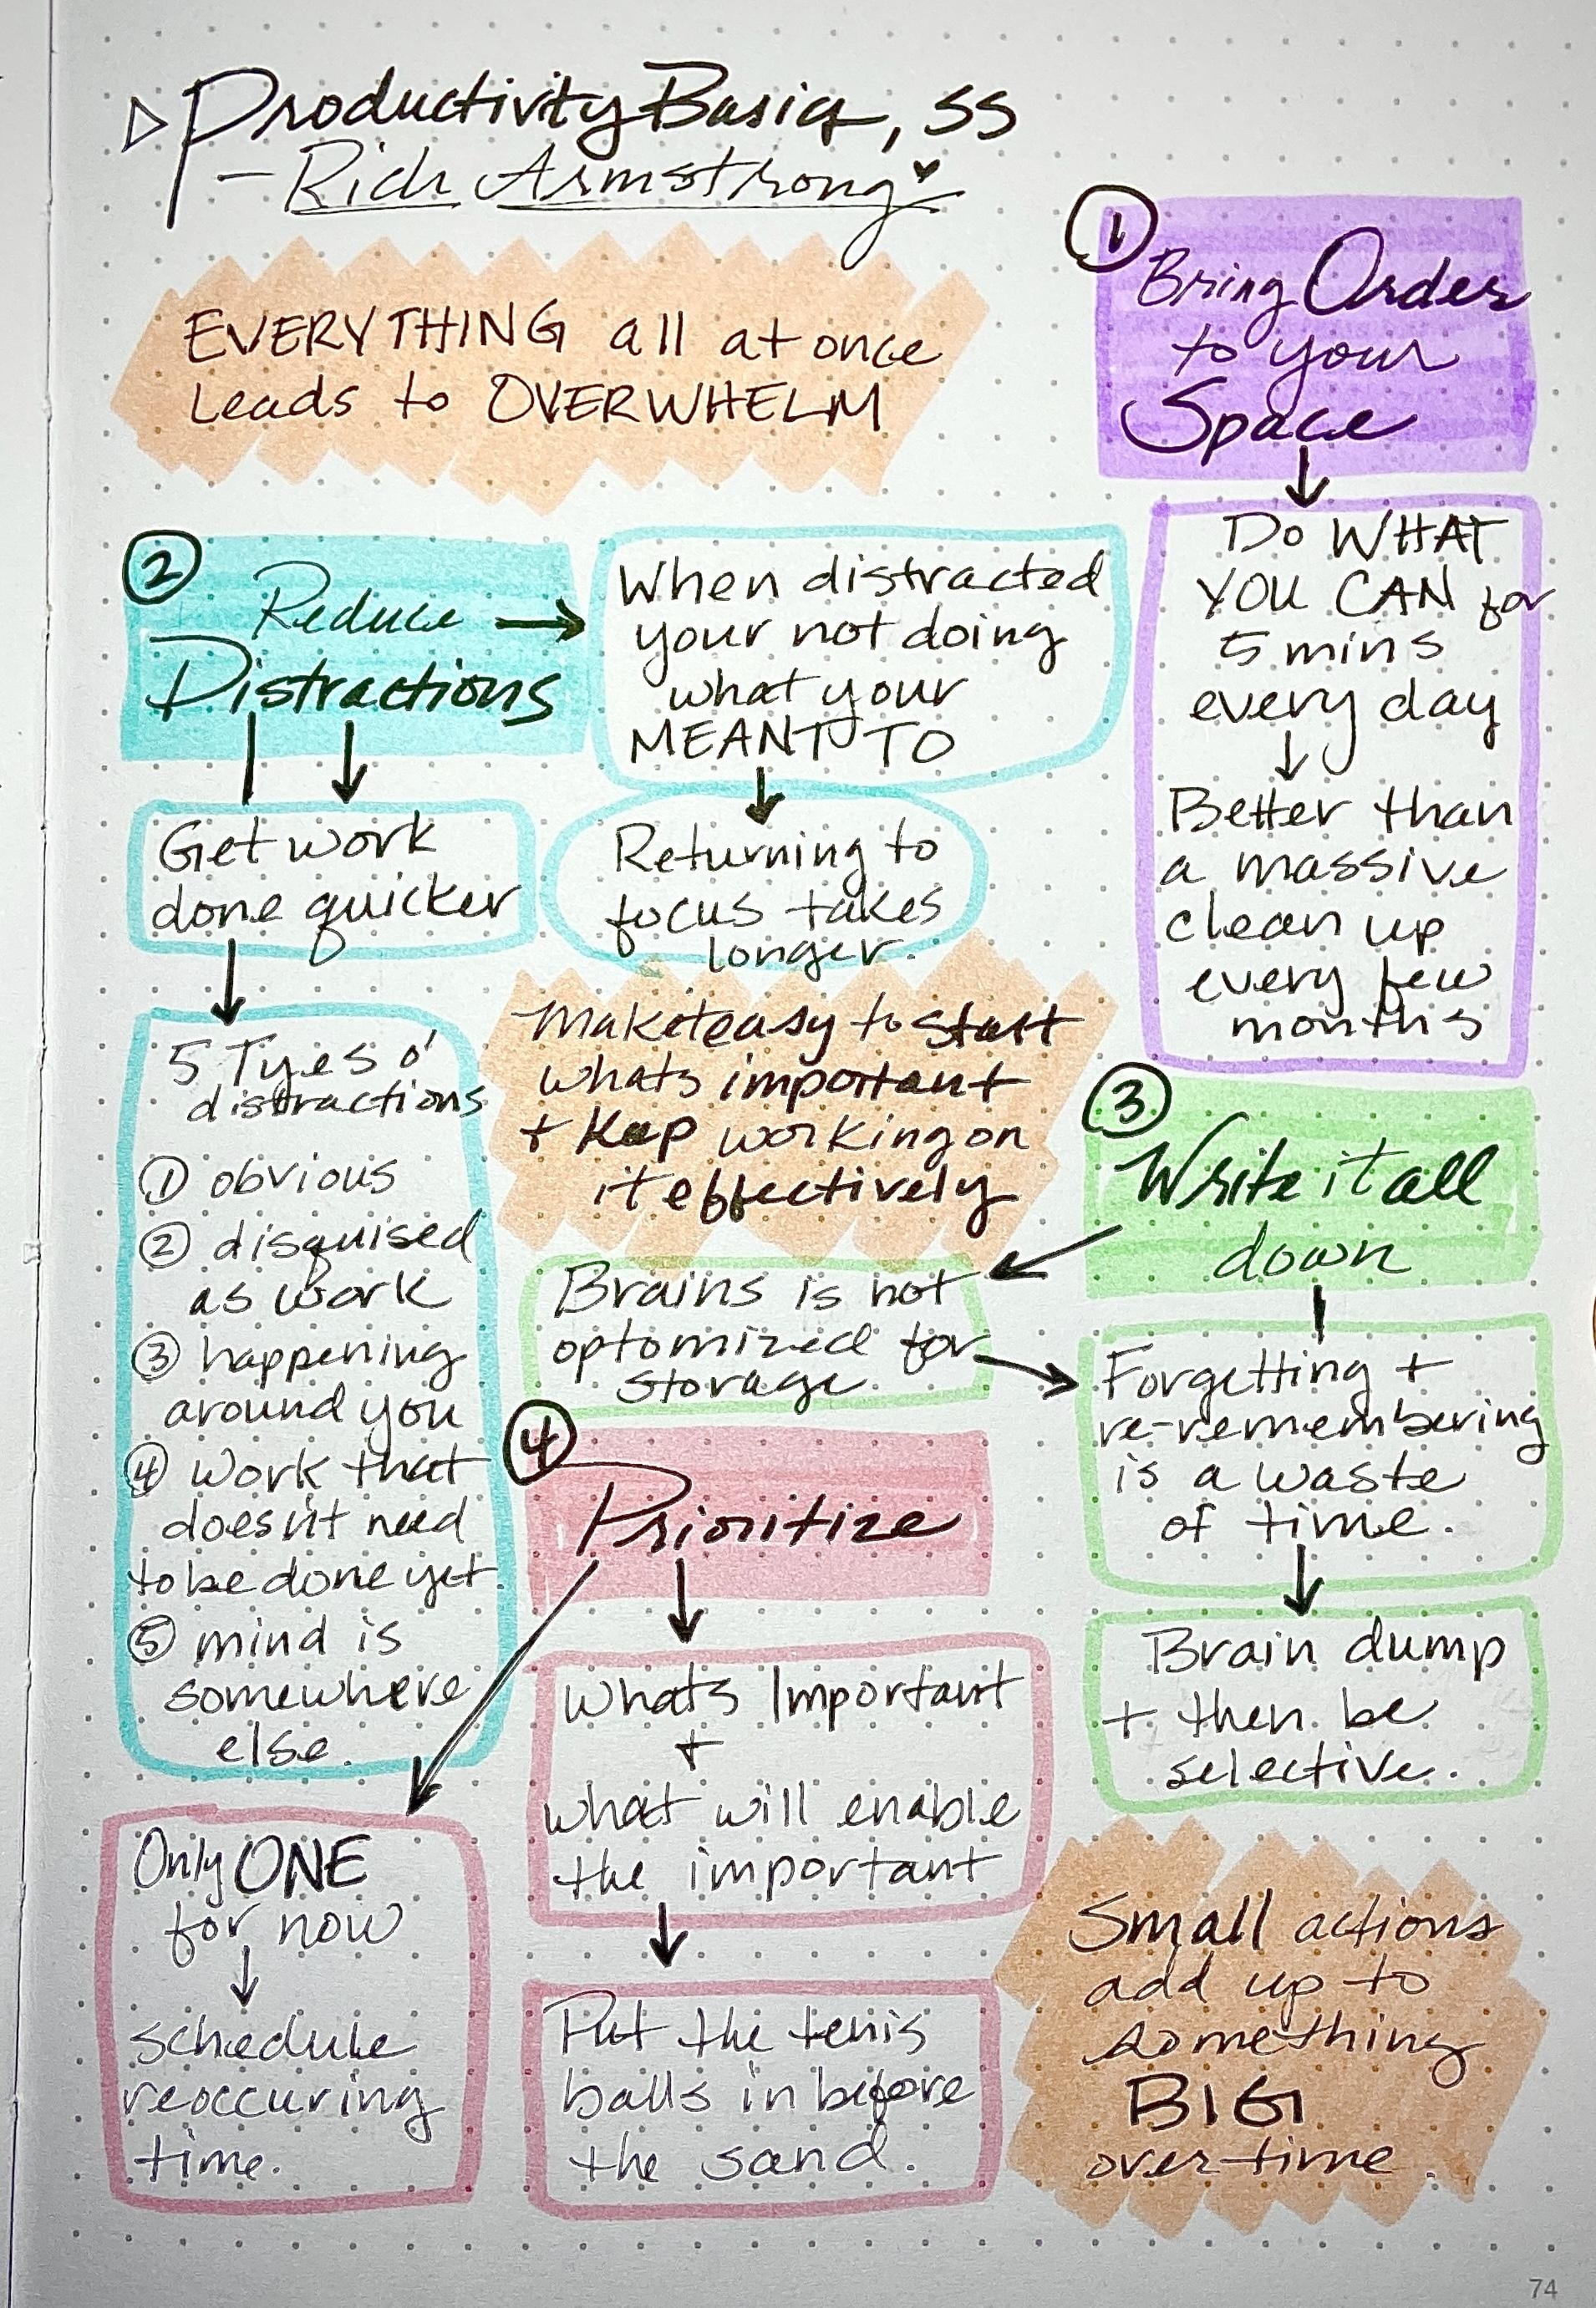 Productivity Basics, SS
- Rich Armstrong
EVERYTHING all at once
Leads to OVERWHELM
①
Bring Order
to your
Space
Do WHAT
YOU CAN for
5 mins
every day
Better than
a massive
clean up
every few
months
②
Reduce
Distractions
When distracted
your not doing
what your
MEANT TO
Returning to
focus takes
longer.
Get work
done quicker
5 Tyes o'
distractions
① obvious
② disguised
as work
③ happening
around you
④ work that
doesn't need
to be done yet.
⑤ mind is
somewhere
else.
Make it easy to start
whats important
+ Keep working on
it effectively
③
Write it all
down
Brains is not
optomized for
storage.
Forgetting +
re-remembering
is a waste
of time.
Brain dump
+ then be
selective.
④
Prioritize
Whats Important
+
what will enable
the important
Put the tenis
balls in before
the sand.
Only ONE
for now
schedule
reoccuring
time.
Small actions
add up to
something
BIG
over time.
74